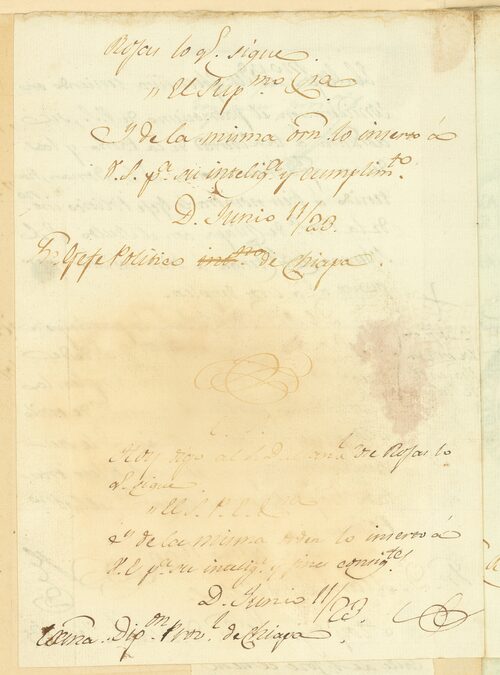 Rojas lo q.e sigue
„ El Sup.mo &ra
Y de la misma orn. lo inserto á
V. S. p.a su intelig.a y cumplim.to
D. Junio 11/23.
S.r Gefe Politico int.o de Chiapa.
Hoy digo al S. D. de Rojas lo
q.e sigue
„ El S. P. E. &ra
Y de la misma orden lo inserto á
V. E. p.a su intelig.a y fines consig.tes
D. Junio 11/23.
Exma. Dip.on Prov.l de Chiapa.